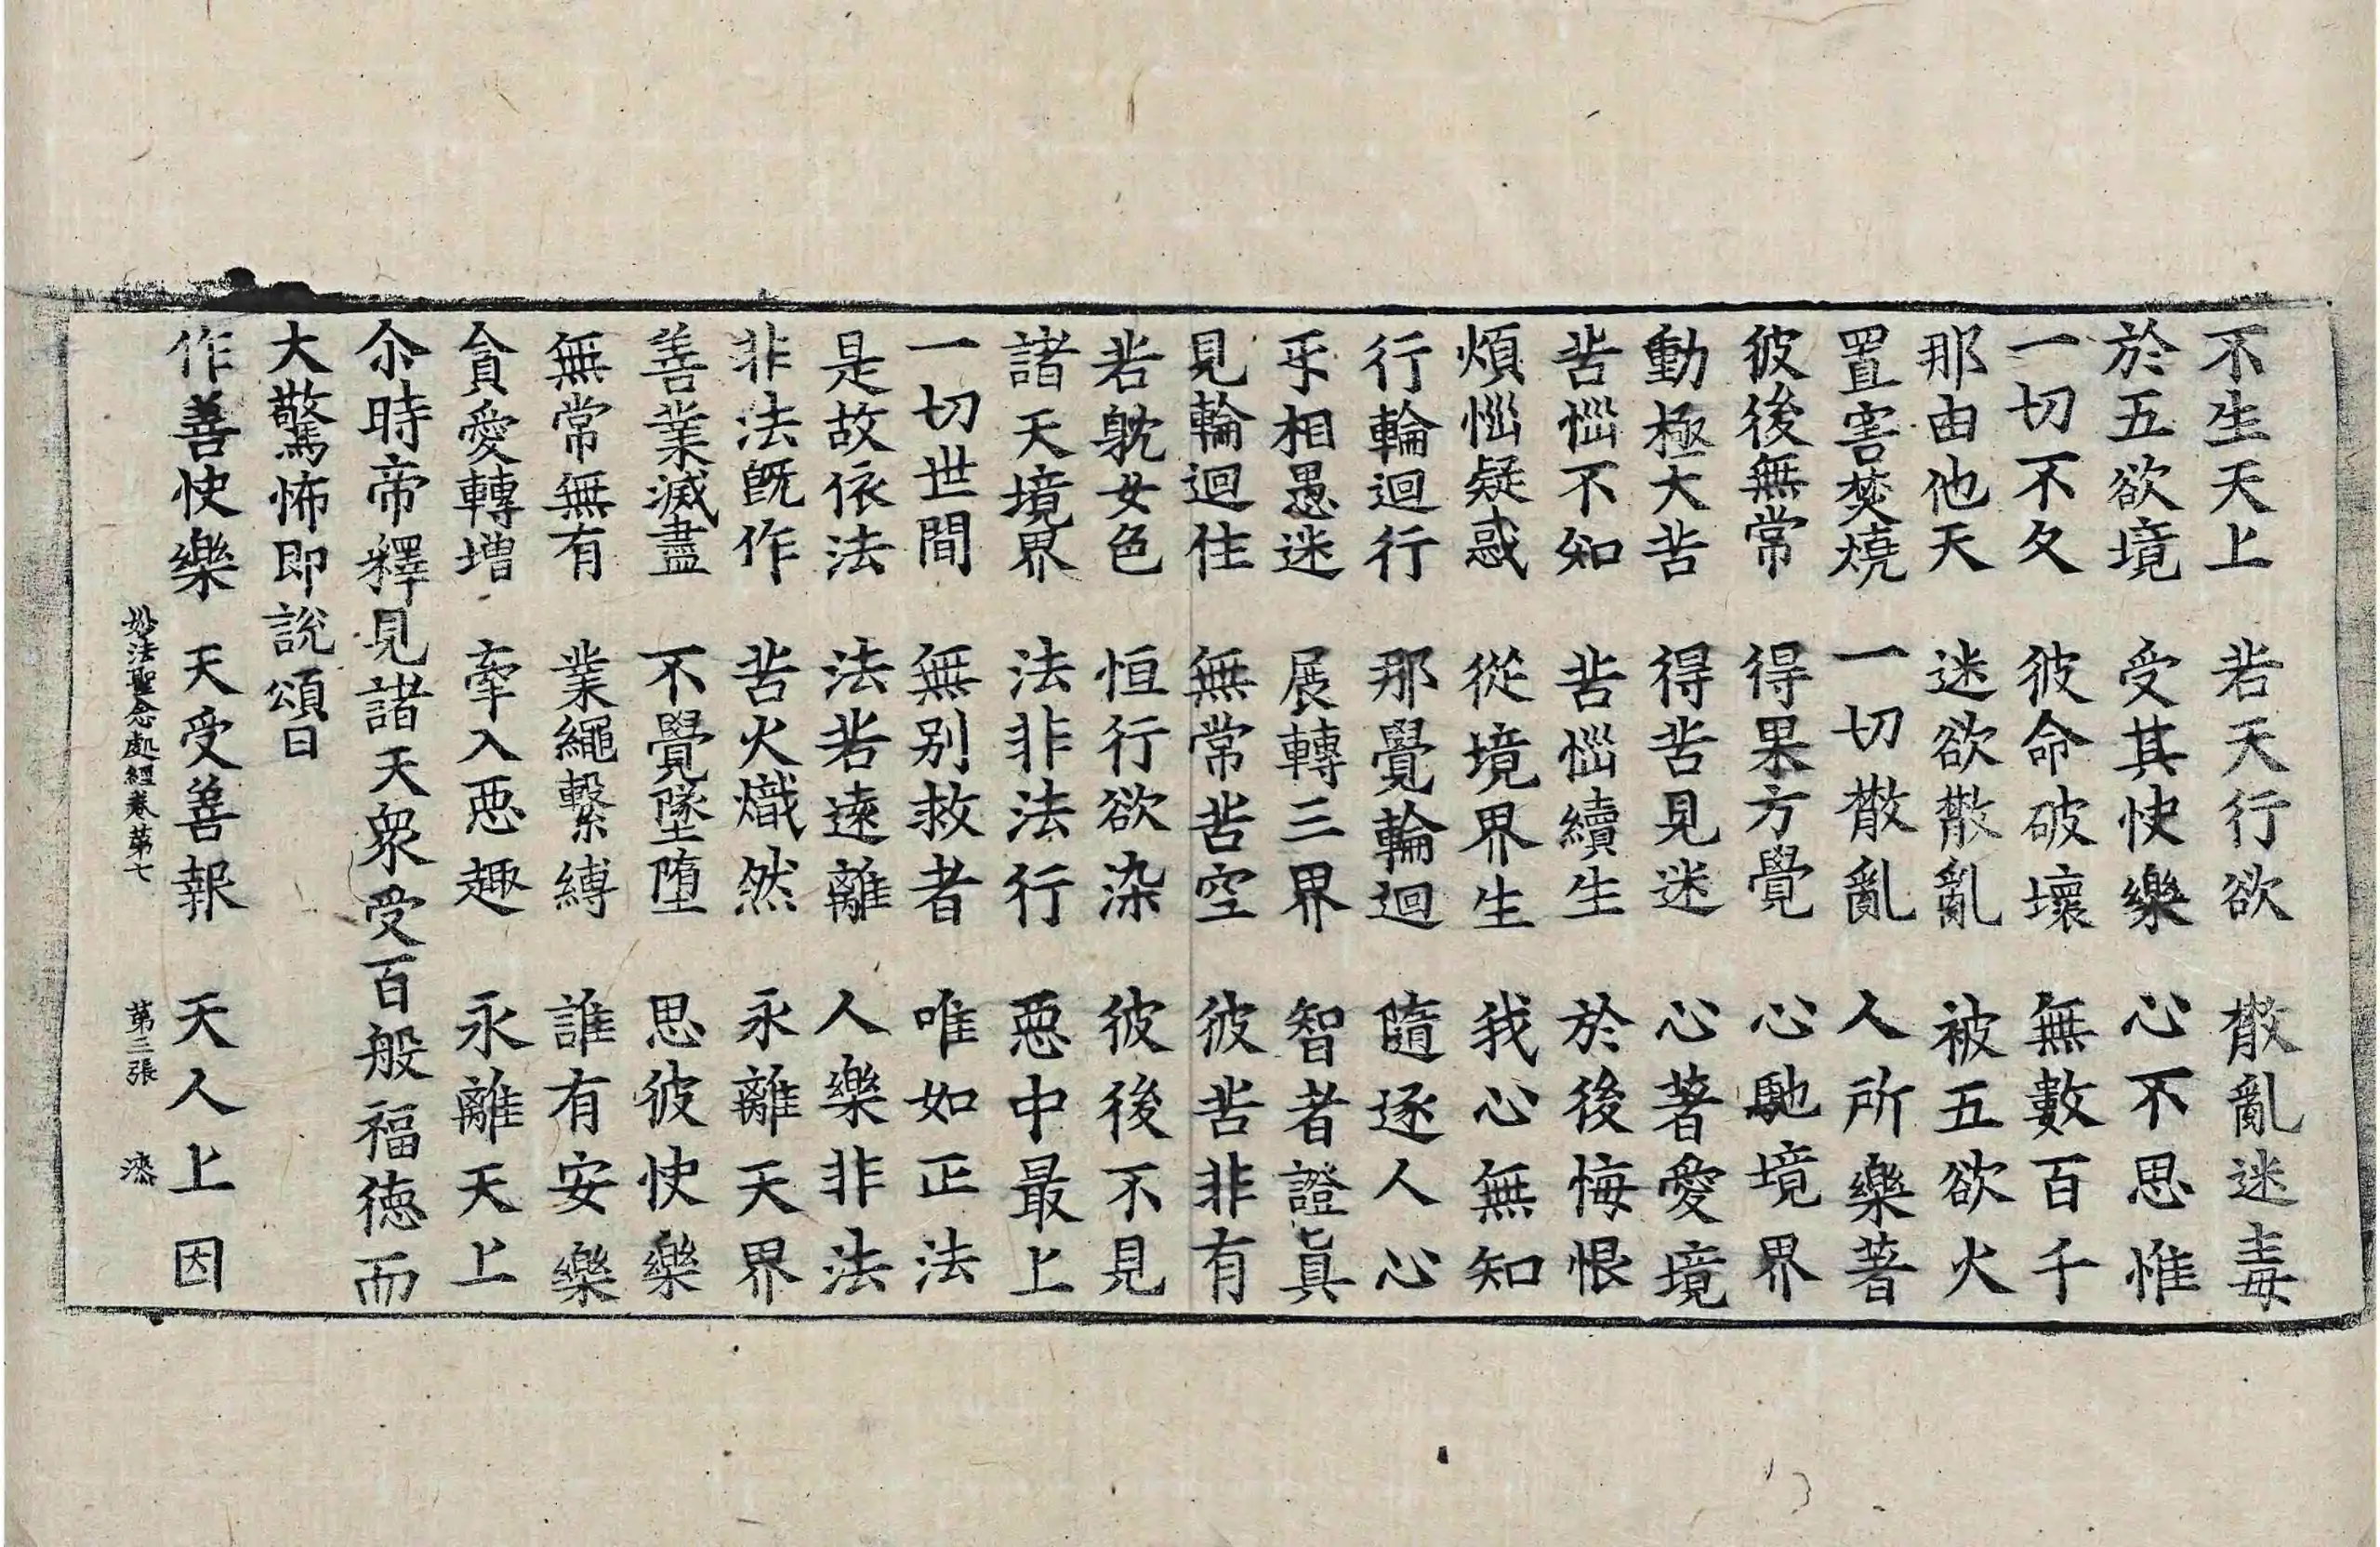 不生天上　若天行欲　散亂迷毒
於五欲境　受其快樂　心不思惟
一切不久　彼命破壞　無數百千
那由他天　迷欲散亂　被五欲火
置害焚燒　一切散亂　人所樂著
彼後無常　得果方覺　心馳境界
動極大苦　得苦見迷　心著愛境
苦惱不知　苦惱續生　於後悔恨
煩惱疑惑　從境界生　我心無知
行輪迴行　那覺輪迴　隨逐人心
乎相愚迷　展轉三界　智者證真
見輪迴住　無常苦空　彼苦非有
若躭女色　恒行欲染　彼後不見
諸天境界　法非法行　惡中最上
一切世間　無別救者　唯如正法
是故依法　法若遠離　人樂非法
非法旣作　苦火熾然　永離天界
善業滅盡　不覺墜墮　思彼快樂
無常無有　業繩繫縛　誰有安樂
貪愛轉增　牽入惡趣　永離天上
尒時帝釋見諸天衆受百般福德而
大驚怖即說頌曰
作善快樂　天受善報　天人上因
妙法聖念處經卷第七　第三張　漆